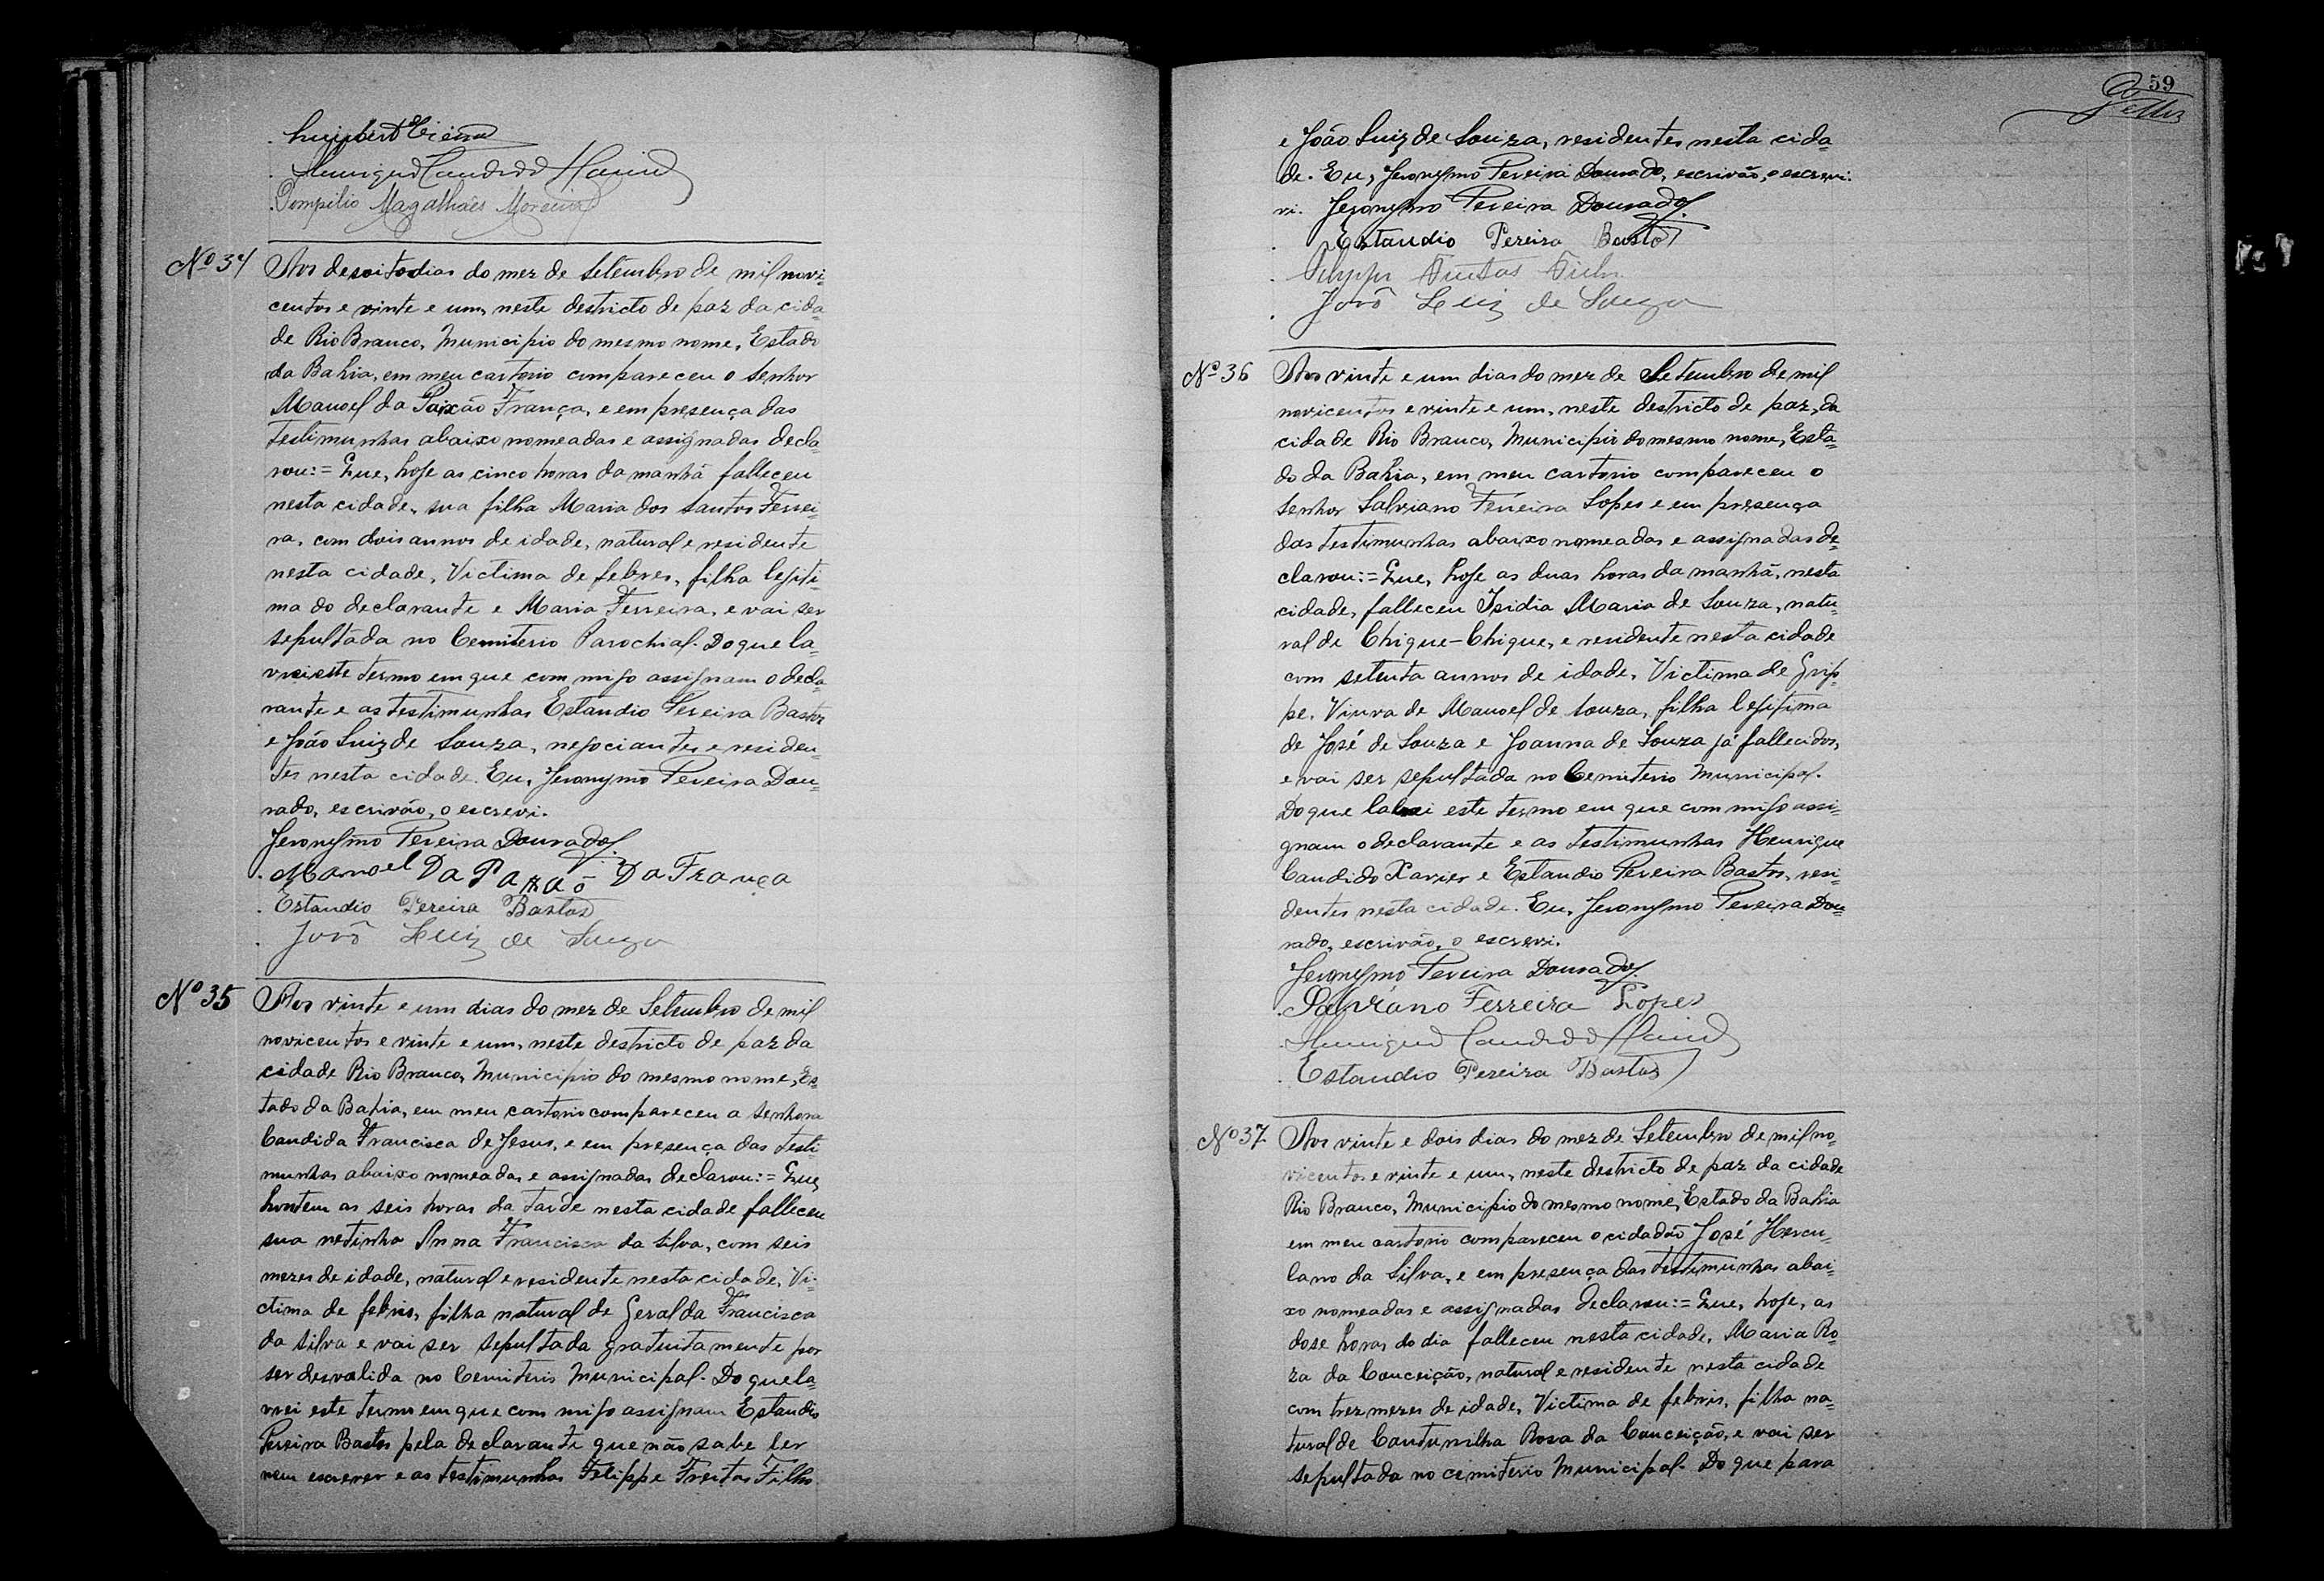 Henrique Candido Xavier
Pompilio Magalhães Moreira
Nº 34 Aos desoito dias do mez de Setembro de mil novi-
centos e vinte e um, neste destricto de paz da cida-
de Rio Branco, Municipio do mesmo nome, Estado
da Bahia, em meu cartorio compareceu o Senhor
Manoel da Paixão França, e em presença das
testimunhas abaixo nomeadas e assignadas decla-
rou:= Que, hoje as cinco horas da manhã falleceu
nesta cidade, sua filha Maria dos Santos Ferrei-
ra, com dois annos de idade, natural e residente
nesta cidade, Victima de febres, filha legiti-
ma do declarante e Maria Ferreira, e vai ser
sepultada no Cemiterio Parochial. Do que la-
vrei este termo em que com migo assignam o decla-
rante e as testimunhas Estandio Pereira Bastos
e João Luiz de Souza, negociantes e residen-
tes nesta cidade. Eu, Jeronymo Pereira Dou-
rado, escrivão, o escrevi.
Jeronymo Pereira Dourado.
Manoel Da Paxaõ Da França
Estandio Pereira Bastos
Joaõ Luiz de Souza
Nº 35 Aos vinte e um dias do mez de Setembro de mil
novicentos e vinte e um, neste destricto de paz da
cidade Rio Branco, Municipio do mesmo nome, Es-
tado da Bahia, em meu cartorio compareceu a Senhora
Candida Francisca de Jesus, e em presença das testi-
munhas abaixo nomeadas e assignadas declarou:= Que,
hontem as seis horas da tarde nesta cidade falleceu
sua netinha Anna Francisca da Silva, com seis
mezes de idade, natural e residente nesta cidade, Vi-
ctima de febris, filha natural de Geralda Francisca
da Silva e vai ser sepultada gratuitamente por
ser desvalida no Cemiterio Municipal. Do que la-
vrei este termo em que com migo assignam Estandio
Pereira Bastos pela declarante que não sabe ler
nem escrever e as testimunhas Felippe Freitas Filho
59
e João Luiz de Souza, residentes nesta cida-
de. Eu, Jeronymo Pereira Dourado, escrivão, o escrevi.
vi. Jeronymo Pereira Dourado.
Estandio Pereira Bastos
Felippe Freitas Filho
Joaõ Luiz de Souza
Nº 36 Aos vinte e um dias do mez de Setembro de mil
novicentos e vinte e um, neste destricto de paz, da
cidade Rio Branco, Municipio do mesmo nome, Esta-
do da Bahia, em meu cartorio compareceu o
Senhor Salviano Ferreira Lopes e em presença
das testimunhas abaixo nomeadas e assignadas de-
clarou:= Que, hoje as duas horas da manhã, nesta
cidade, falleceu Isidia Maria de Souza, natu-
ral de Chique-Chique, e residente nesta cidade
com setenta annos de idade, Victima de Grip-
pe. Viuva de Manoel de Souza, filha legitima
de José de Souza e Joanna de Souza já fallecidos,
e vai ser sepultada no Cemiterio Municipal.
Do que lavrei este termo em que com migo assi-
gnam o declarante e as testimunhas Henrique
Candido Xavier e Estandio Pereira Bastos, resi-
dentes nesta cidade. Eu, Jeronymo Pereira Dou-
rado, escrivão, o escrevi.
Jeronymo Pereira Dourado.
Salviano Ferreira Lopes
Henrique Candido Xavier
Estandio Pereira Bastos
Nº 37 Aos vinte e dois dias do mez de Setembro de mil no-
vicentos e vinte e um, neste destricto de paz da cidade
Rio Branco, Municipio do mesmo nome, Estado da Bahia
em meu cartorio compareceu o cidadão José Hercu-
lano da Silva, e em presença das testimunhas abai-
xo nomeadas e assignadas declarou:= Que, hoje, as
dose horas do dia falleceu nesta cidade, Maria Ro-
za da Conceição, natural e residente nesta cidade
com trez mezes de idade, Victima de febris, filha na-
tural de Cantunilha Rosa da Conceição, e vai ser
sepultada no cimiterio Municipal. Do que para